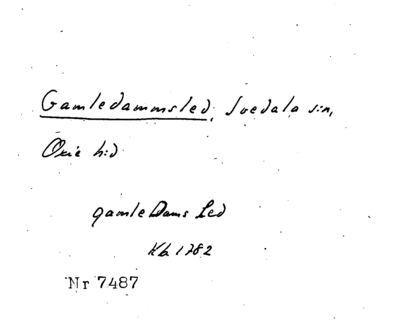 Gamledammsled, Svedala sn,
Oxie hd
gamle Dams Led
Kb 1782
Nr 7487